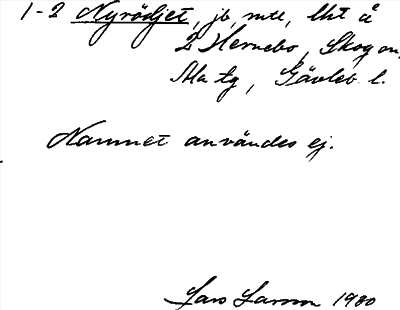 1-2 Nyrödjet, jb, mte, lht å
2 Hernebo, Skog sn,
Ala tg, Gävleb. l.
Namnet användes ej.
Lars Larsson 1930